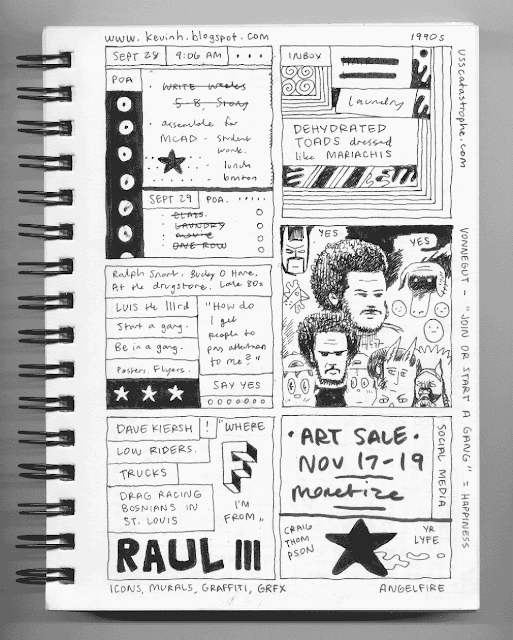 www.kevinh.blogspot.com
1990s
SEPT 28
9:06 AM
POA
WRITE Weeks
5-8. Story
assemble for
MCAD - student
work.
lunch
SEPT 29
POA.
CLASS
LAUNDRY
MOVIE
ONE ROW
INBOX
Laundry
DEHYDRATED
TOADS dressed
like MARIACHIS
usscatastrophe.com
Ralph Snart. Bucky O Hare.
At the drugstore. Late 80s
LUIS the IIIrd
Start a gang.
Be in a gang.
Posters. Flyers.
"How do
I get
people to
pay attention
to me?"
SAY YES
YES
YES
VONNEGUT - "JOIN OR START A GANG" = HAPPINESS
DAVE KIERSH !
LOW RIDERS.
TRUCKS
DRAG RACING
BOSNIANS IN
ST. LOUIS
"WHERE
I'M
FROM"
RAUL III
·ART SALE·
NOV 17-19
monetize
SOCIAL MEDIA
CRAIG
THOM
PSON
YR
LYFE
ICONS, MURALS, GRAFFITI, GRFX
ANGELFIRE